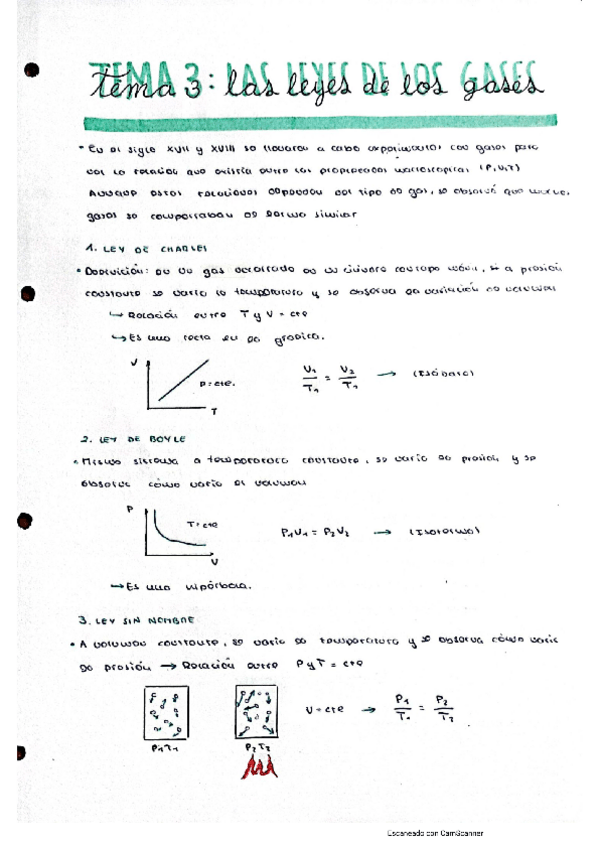 tema 3: las leyes de los gases
• En el siglo XVII y XVIII se llevaron a cabo experimentos con gases para
ver la relación que existía entre las propiedades macroscópicas (P,V,T)
Aunque estas relaciones dependen del tipo de gas, se observó que muchos
gases se comportaban de forma similar
1. LEY DE CHARLES
• Definición: de un gas encerrado en un cilindro con tapa móvil, si a presión
constante se varía la temperatura y se observa la variación de volumen
↳ Relación entre T y V = cte
↳ Es una recta en la gráfica.
V
P = cte.
T
V₁/T₁ = V₂/T₁ → (Isóbara)
2. LEY DE BOYLE
• Mismo sistema a temperatura constante, se varía la presión y se
observa cómo varía el volumen
P
T = cte
V
P₁V₁ = P₂V₂ → (Isotermo)
→ Es una hipérbola.
3. LEY SIN NOMBRE
• A volumen constante, se varía la temperatura y se observa cómo varía
la presión → Relación entre P y T = cte
P₁T₁
P₂T₂
V = cte → P₁/T₁ = P₂/T₂
Escaneado con CamScanner